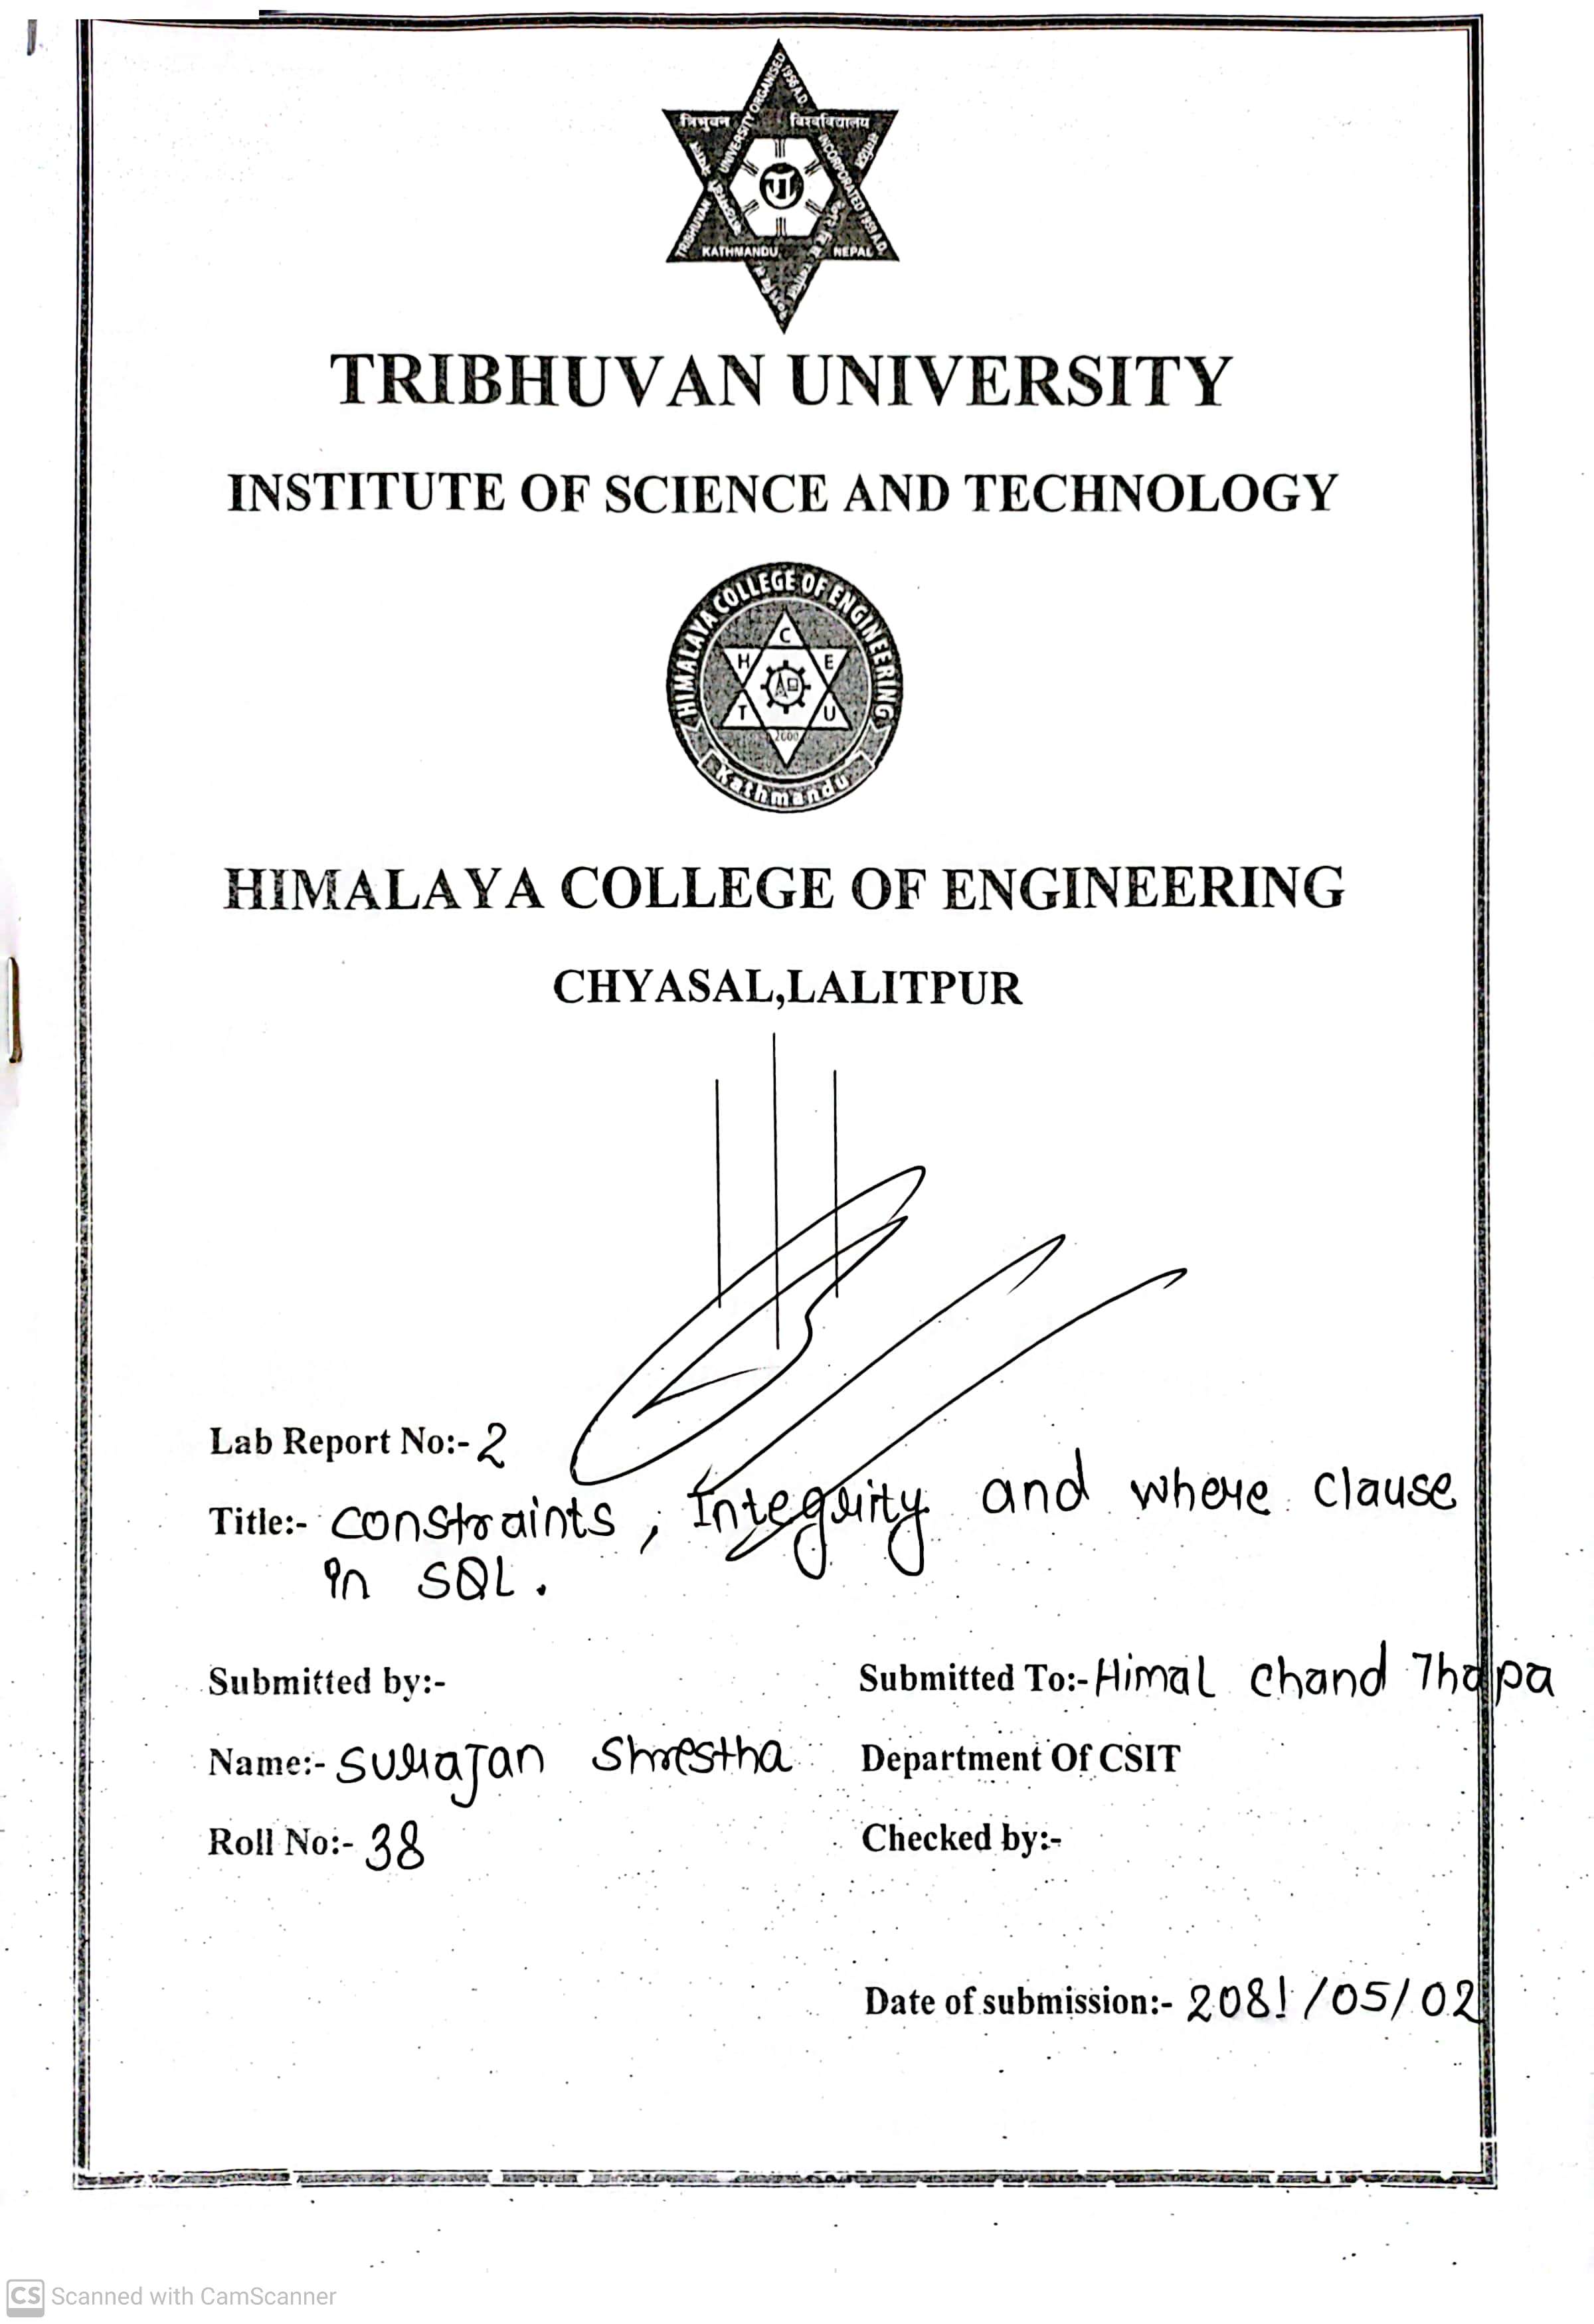 त्रिभुवन विश्वविद्यालय
TRIBHUVAN UNIVERSITY ORGANISED 1956 A.D.
INCORPORATED 1959 A.D.
KATHMANDU, NEPAL
TRIBHUVAN UNIVERSITY
INSTITUTE OF SCIENCE AND TECHNOLOGY
HIMALAYA COLLEGE OF ENGINEERING
C
H E
T U
2000
Kathmandu
HIMALAYA COLLEGE OF ENGINEERING
CHYASAL,LALITPUR
Lab Report No:- 2
Title:- Constraints, Integrity and where clause
in SQL.
Submitted by:- Submitted To:- Himal Chand Thapa
Name:- Surajan Shrestha Department Of CSIT
Roll No:- 38 Checked by:-
Date of submission:- 2081/05/02
CS Scanned with CamScanner